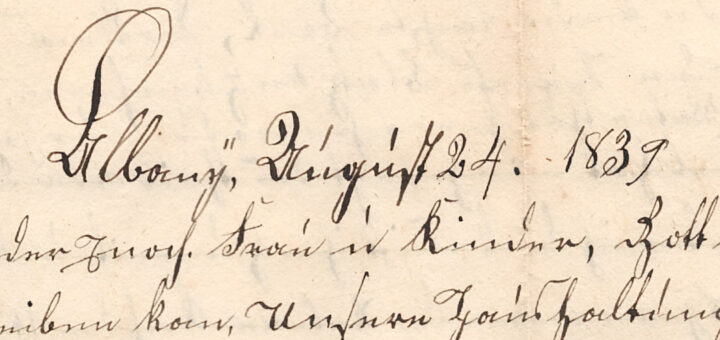 Albanÿ, August 24. 1839
der Frau u Kinder, Gott
eiben kan, Unsere Haushaltung